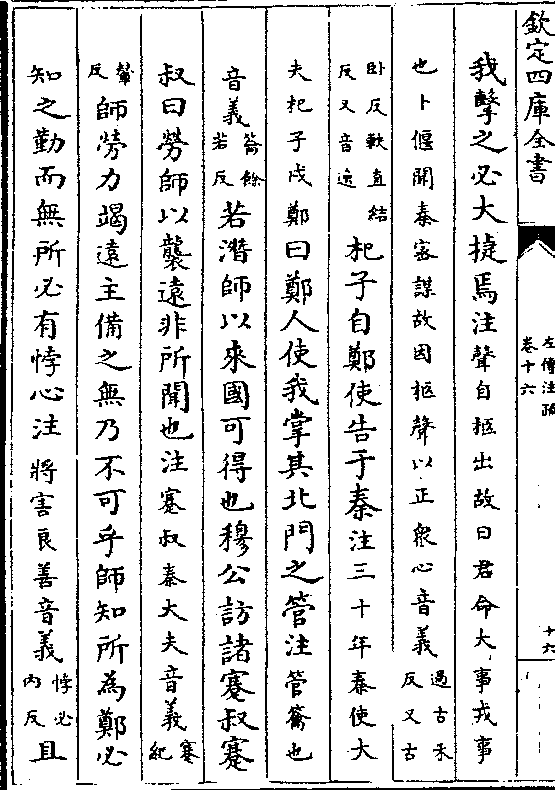 欽定四庫全書
左傳注疏
卷十六
十六
我擊之必大捷焉注聲自柩出故曰君命大事戎事
也卜偃聞秦密謀故因柩聲以正衆心音義過古禾反又古
卧反軼直結反又音逸杞子自鄭使告于秦注三十年秦使大
夫杞子戍鄭曰鄭人使我掌其北門之管注管籥也
音義籥餘若反若潛師以來國可得也穆公訪諸蹇叔蹇
叔曰勞師以襲遠非所聞也注蹇叔秦大夫音義蹇紀
輦反師勞力竭遠主備之無乃不可乎師知所為鄭必
知之勤而無所必有悖心注將害良善音義悖必内反且